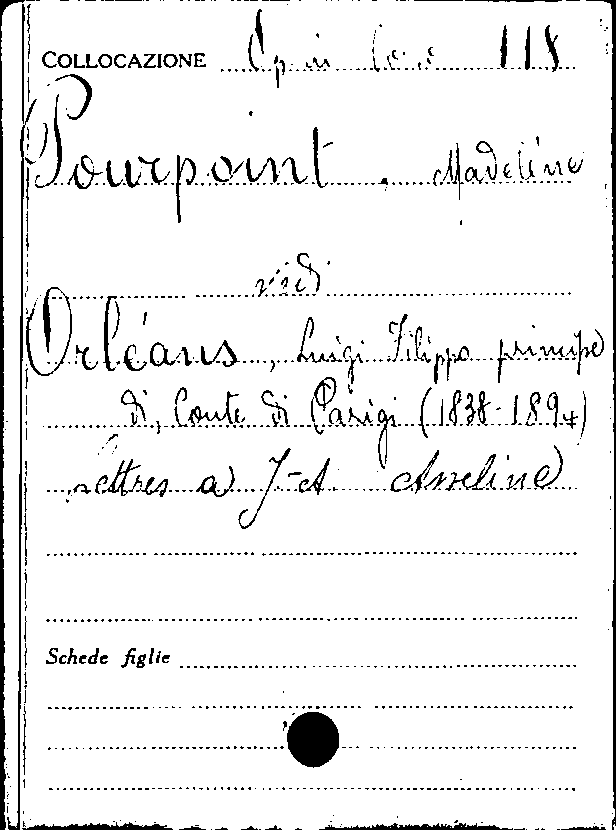 COLLOCAZIONE 118
Pourpoint, Madeleine
vedi
Orléans, Luigi Filippo principe
di, Conte di Parigi (1838-1894)
Lettres a J-A Asseline
Schede figlie